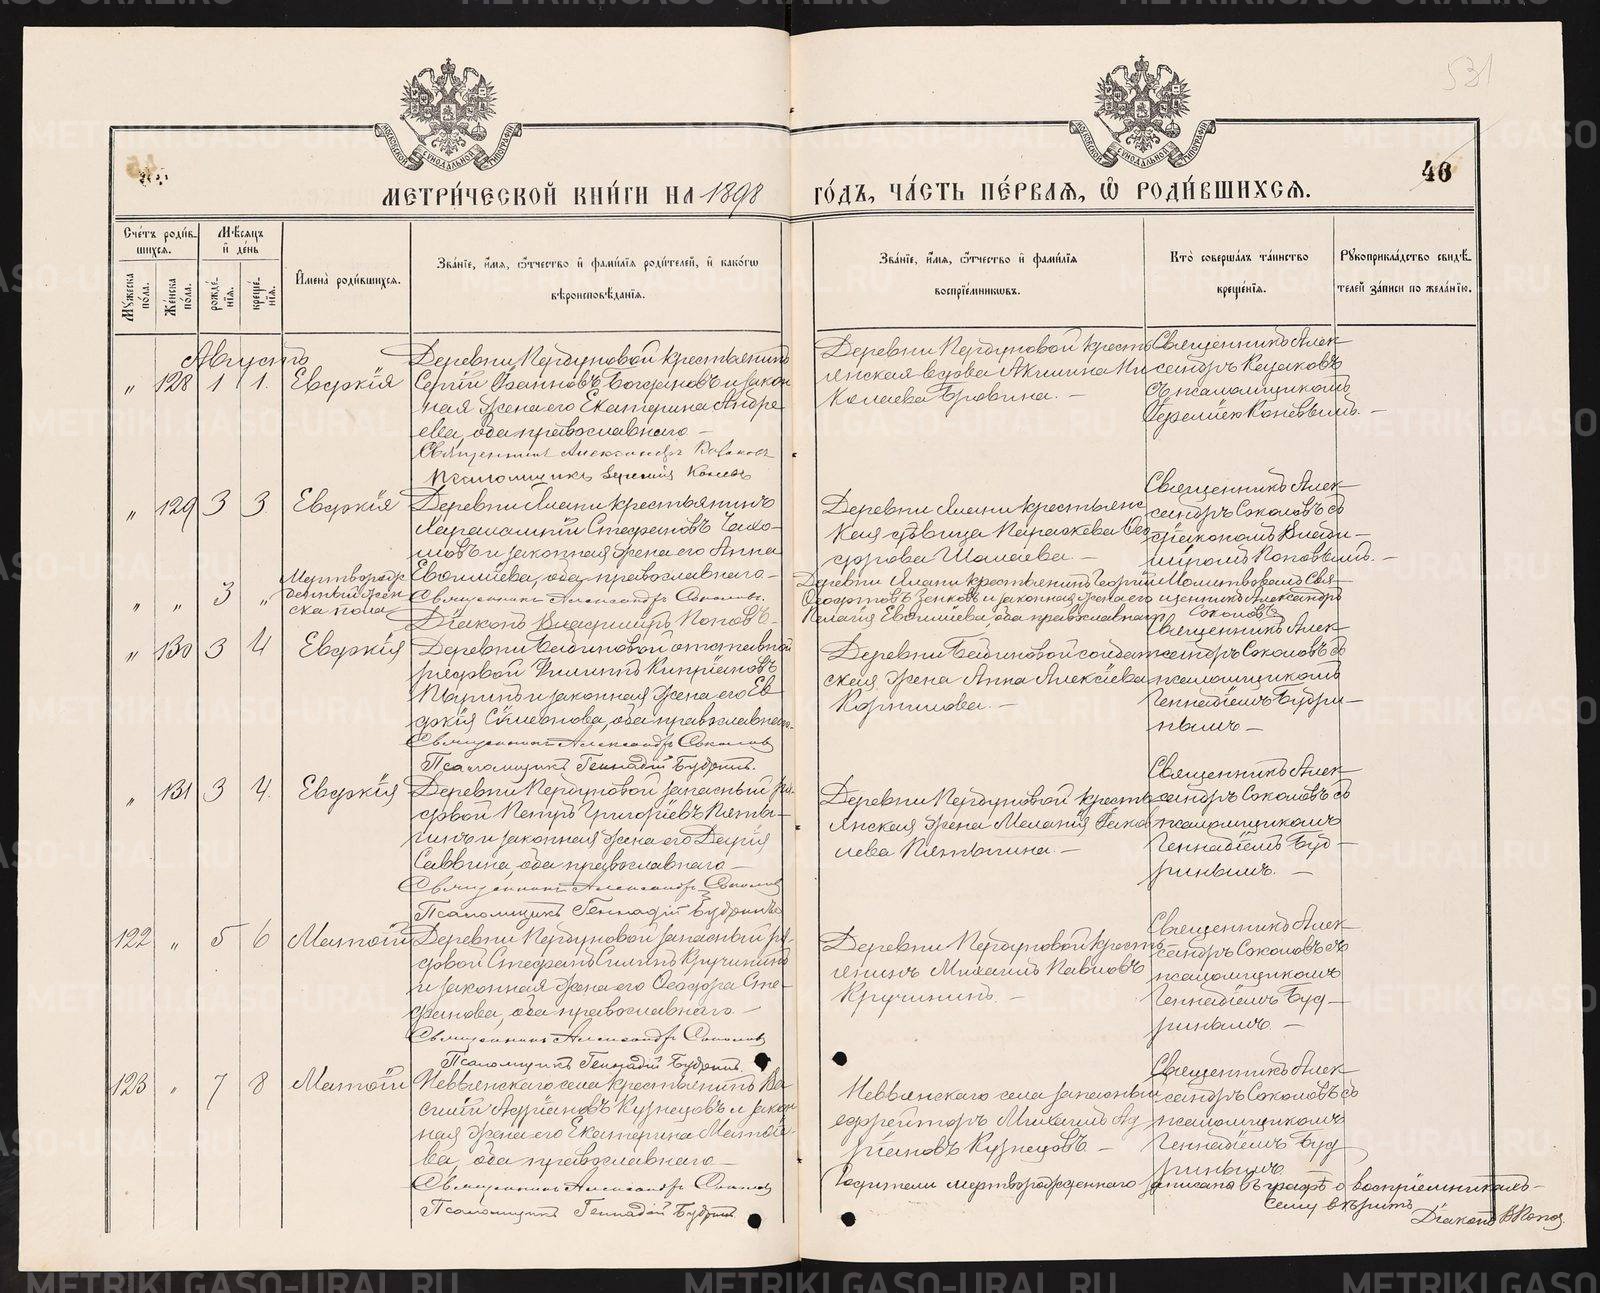 531
46
МЕТРИ́ЧЕСКОЙ КНИ́ГИ НА 1898
ГО́ДЪ, ЧА́СТЬ ПЕ́РВАЯ, Ѽ РОДИ́ВШИХСЯ.
Сче́тъ роди́в-
шихся.
Мѣ́сяцъ
и҆ де́нь
Мꙋ́жеска по́ла.
Же́нска по́ла.
рожде́-нїя.
креще́-нїя.
И҆мена̀ роди́вшихся.
Зва́нїе, и҆́мя, ѻ҆́тчество и҆ фами́лїя роди́телей, и҆ како́гѡ
вѣроисповѣ́данїя.
Зва́нїе, и҆́мя, ѻ҆́тчество и҆ фами́лїя
воспрїе́мникѡвъ.
Кто̀ соверша́лъ та́инство
креще́нїя.
Рꙋкоприкла́дство свидѣ́-
телей за́писи по жела́нїю.
Августъ
„ 128 1 1. Евдокія
Деревни Первуновой крестьянинъ
Сергій Ѳоминовъ Богдановъ и закон
ная жена его Екатерина Андре
ева, оба православнаго —
Священникъ Александръ Казаковъ
Псаломщикъ Іеремія Коневъ
Деревни Первуновой кресть
янская вдова Акилина Ни
колаева Бровина. —
Священникъ Алек
сандръ Казаковъ
съ псаломщикомъ
Іереміею Коневымъ. —
„ 129 3 3. Евдокія
Деревни крестьянинъ
Харалампій Стефановъ
и законная жена его Анна
Евѳиміева, оба православнаго —
Священникъ Александръ Соколовъ.
Діаконъ Владиміръ Поповъ —
Деревни крестьянс
кая дѣвица Параскева Ѳео
дорова Шалаева. —
Священникъ Алек
сандръ Соколовъ съ
діакономъ Влади—
міромъ Поповымъ. —
„ „ 3 „ Мертворож
денный жен
ска пола
Деревни крестьянинъ Георгій
Ѳеодотовъ Зенковъ и законная жена его
Пелагія Евѳиміева, оба православнаго
Молитвовалъ Свя-
щенникъ Александръ
Соколовъ
„ 130 3 4 Евдокія
Деревни отставной
рядовой Филиппъ Кипріановъ
и законная жена его Ев
докія Сѵмеонова, оба православнаго.
Священникъ Александръ Соколовъ
Псаломщикъ Геннадій Будринъ.
Деревни солдат
ская жена Анна Алексіева
Корнилова. —
Священникъ Алек
сандръ Соколовъ съ
псаломщикомъ
Геннадіемъ Будри—
нымъ —
„ 131 3 4. Евдокія
Деревни Первуновой запасный ря-
довой Петръ Григоріевъ Пяты-
гинъ и законная жена его Дарія
Саввина, оба православнаго —
Священникъ Александръ Соколовъ
Псаломщикъ Геннадій Будринъ
Деревни Первуновой кресть
янская жена Меланія Іако
влева Пятыгина. —
Священникъ Алек
сандръ Соколовъ съ
псаломщикомъ
Геннадіемъ Буд—
ринымъ. —
122 „ 5 6 Матѳій
Деревни Первуновой запасный ря-
довой Стефанъ Силинъ Кручининъ
и законная жена его Ѳеодора Сте-
фанова, оба православнаго. —
Священникъ Александръ Соколовъ
Псаломщикъ Геннадій Будринъ.
Деревни Первуновой кресть
янинъ Михаилъ Павловъ
Кручининъ. —
Священникъ Алек
сандръ Соколовъ съ
псаломщикомъ
Геннадіемъ Буд—
ринымъ. —
123 „ 7 8 Матѳій
Невьянскаго села крестьянинъ Ва
силій Адріановъ Кузнецовъ и закон
ная жена его Екатерина Матѳіе-
ва, оба православнаго —
Священникъ Александръ Соколовъ
Псаломщикъ Геннадій Будринъ.
Невьянскаго села запасный
ефрейторъ Михаилъ Ад
ріановъ Кузнецовъ. —
Священникъ Алек
сандръ Соколовъ съ
псаломщикомъ
Геннадіемъ Буд
ринымъ.
Родители мертворожденнаго записаны въ графѣ о воспріемникахъ —
Сему вѣрить
Діаконъ В. Попов